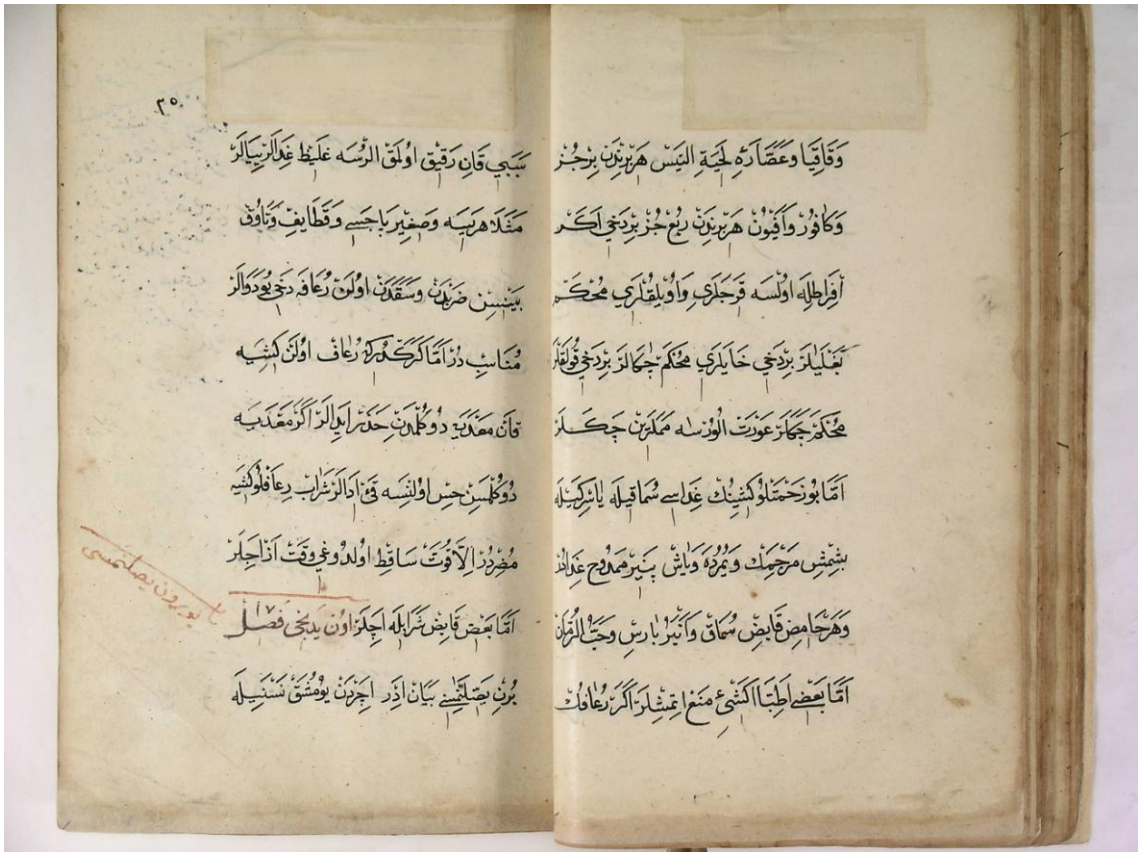 وَقَاقِيَا وَعُصَّارَهِ لِحْيَةِ التَيْسْ هَرْ بِرِنْدَنْ بِرْ جُزْ
وَكَافُورْ وَاَفْيُونْ هَرْ بِرِنْدَنْ رُبْعْ جُزْ بِرْ دَخِي اَكَرْ
اَفِرَاطِلَه اُولْسَه قُوجَلَرِي وَاُويْلِقْلَرِي مُحْكَمْ
بَغْلَيَلَرْ بِرْ دَخِي خَايَلَرِي مُحْكَمْ چَكَالَرْ بِرْ دَخِي قُولَقْلَرِ
مُحْكَمْ چَكَالَرْ عَوْرَتْ اُلُورْسَه مَمَلَرِنْ چَكَلَرْ
اَمَّا بُو زَحْمَتْلُو كَشِينِكْ غِدَاسِي سُمَاقِيلَه يَا سِرْكَيِلَه
بِشِمْشِ مَرْجِمَكْ وَيُمُرْدَه وَيَاشْ بَنِيرْ مَمْدُوحْ غِدَادُرْ
وَهَرْ حَامِضِ قَابِضْ سُمَاقْ وَاَنْبَرْ بَارِسْ وَحَبُّ الرُّمَّانْ
اَمَّا بَعْضِي اَطِبَّا اَكْشِيْ مَنْع اِتْمِشْلَرْ اَكَرْ رُعَافُكْ
٣٥
سَبَبِي قَانِ رَقِيقْ اُولْمَقْ الُرْسَه غَلِيظْ غِدَالَرْ يِيَالَرْ
مَثَلَا هَرِيسَه وَصِغِيرْ پَاجَسِي وَقَطَايِفْ وَتَاوُقْ
بَيْنِسِنْ ضَرْبَدَنْ وَسَقَدَنْ اُولَنْ رُعَافَه دَخِي بُو دَوَالَرْ
مُنَاسِبْ دُرْ اَمَّا كَرَكْدُرْ كِه رُعَافْ اُولَنْ كِشِيَه
قَانْ مِعْدَيَه دُوكُلْمَدَنْ حَذَرْ اِيدَالَرْ اَكَرْ مِعْدَيَه
دُوكُلْمَسِنْ حِسْ اُولُنْسَه قَيْ اِدَالَرْ شَرَابْ رِعَافْلُو كِشِيَه
مُضِرْدُرْ اِلَّا قُوَّتْ سَاقِطْ اُولْدُوغِي وَقْتْ اَنْ اِچَلَرْ
اَمَّا بَعْضْ قَابِضْ شَرَابِلَه اِچَلَرْ اوُنْ يَدِنْجِي فَصْلْ ١٧
بُرُنِ يَصِّلَنْمَسِنِي بَيَانْ اِدَرْ اِچَرْدَنْ يُومْشَقْ نَسْنَيِلَه
بوروون يصلنمسى